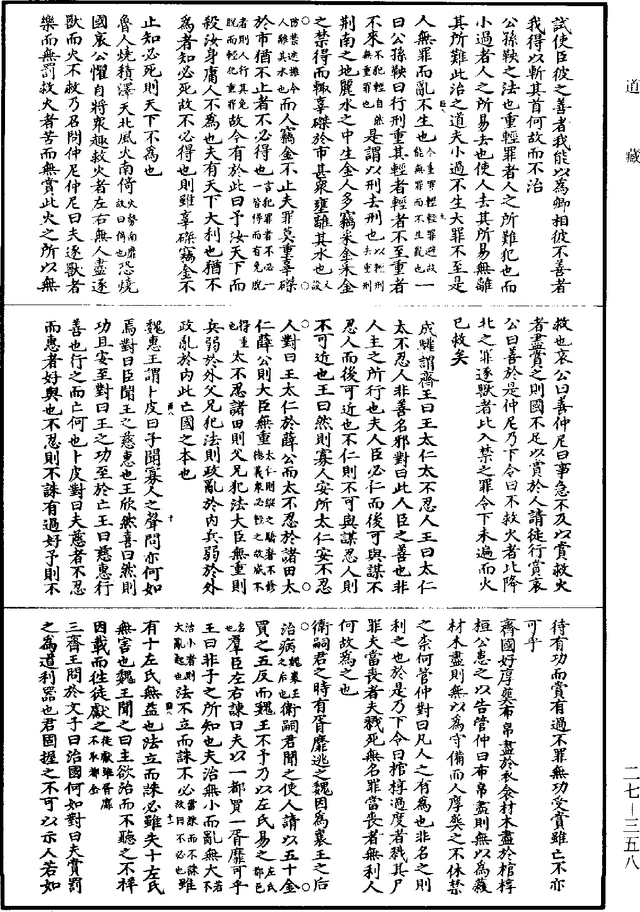 道藏
試使臣彼之善者我能以為卿相彼不善者
我得以斬其首何故而不治
公孫鞅之法也重輕罪者人之所難犯也而
小過者人之所易去也使人去其所易無離
其所難此治之道夫小過不生大罪不至是
人無罪而亂不生也今重罪輕輕罪避故一能無罪而不生亂也一
曰公孫鞅曰行刑重其輕者輕者不至重者
不來不犯輕自然無重罪也是謂以刑去刑也以輕刑去重刑
荆南之地麗水之中生金人多竊采金采金
之禁得而輒辜磔於市甚衆壅離其水也又設
防禁遮擁令人離其水也而人竊金不止夫罪莫重辜磔
於市猶不止者不必得也言犯罪者不必一一皆得而有免脫
者則人行其免脫而輕犯重罪故今有於此曰予汝天下而
殺汝身庸人不為也夫有天下大利也猶不
為者知必死故不必得也則雖辜磔竊金不
止知必死則天下不為也
魯人燒積澤天北風火南倚火勢南靡故曰倚也恐燒
國哀公懼自將衆趣救火者左右無人盡逐
獸而火不救乃召問仲尼仲尼曰夫逐獸者
樂而無罰救火者苦而無賞此火之所以無
救也哀公曰善仲尼曰事急不及以賞救火
者盡賞之則國不足以賞於人請徒行賞哀
公曰善於是仲尼乃下令曰不救火者比降
北之罪逐獸者比入禁之罪令下未遍而火
已救矣
成驩謂齊王曰王太仁太不忍人王曰太仁
太不忍人非善名邪對曰此人臣之善也非
人主之所行也夫人臣必仁而後可與謀不
忍人而後可近也不仁則不可與謀忍人則
不可近也王曰然則寡人安所太仁安不忍
人對曰王太仁於薛公而太不忍於諸田太
仁薛公則大臣無重太仁則縱之驕奢不修德義衆必輕之故威不
得重也太不忍諸田則父兄犯法大臣無重則
兵弱於外父兄犯法則政亂於內兵弱於外
政亂於內此亡國之本也
魏惠王謂卜皮曰子聞寡人之聲聞亦何如
焉對曰臣聞王之慈惠也王欣然喜曰然則
功且安至對曰王之功至於亡王曰慈惠行
善也行之而亡何也卜皮對曰夫慈者不忍
而惠者好與也不忍則不誅有過好予則不
待有功而賞有過不罪無功受賞雖亡不亦
可乎
齊國好厚葬布帛盡於衣衾材木盡於棺椁
桓公患之以告管仲曰布帛盡則無以為蔽
材木盡則無以為守備而人厚葬之不休禁
之柰何管仲對曰凡人之有為也非名之則
利之也於是乃下令曰棺椁過度者戮其尸
罪夫當喪者夫戮死無名罪當喪者無利人
何故為之也
衛嗣君之時有胥靡逃之魏因為襄王之后
治病魏襄王之后也衛嗣君聞之使人請以五十金
買之五反而魏王不予乃以左氏易之都邑
名也羣臣左右諫曰夫以一都買一胥靡可乎
王曰非子之所知也夫治無小而亂無大若
治小者則大亂起也法不立而誅不必當誅而不誅故曰不必也雖
有十左氏無益也法立而誅必雖失十左氏
無害也魏王聞之曰主欲治而不聽之不祥
因載而往徒獻之徒獻雖胥靡不取都金
三齊王問於文子曰治國何如對曰夫賞罰
之為道利器也君固握之不可以示人若如
二七—三五八